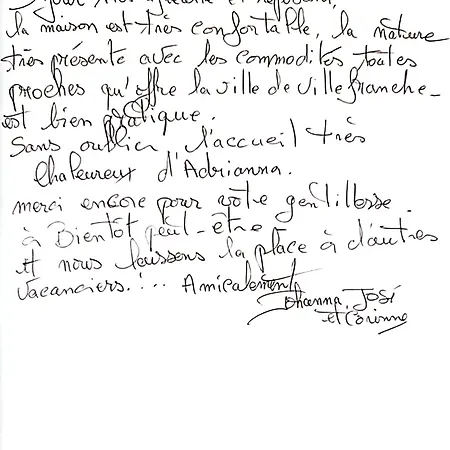 très agréable et reposant,
la maison est très confortable, la nature
très présente avec les commodités toutes
proches qu'offre la ville de villefranche-
est bien pratique.
Sans oublier l'accueil très
chaleureux d'Adrianna.
merci encore pour votre gentillesse.
à Bientôt peut-être
et nous laissons la place à d'autres
vacanciers.!... Amicalement
Johanna, José
et Corinne